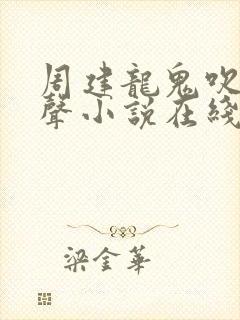 周建龍鬼吹
聲小説在綫
梁金華